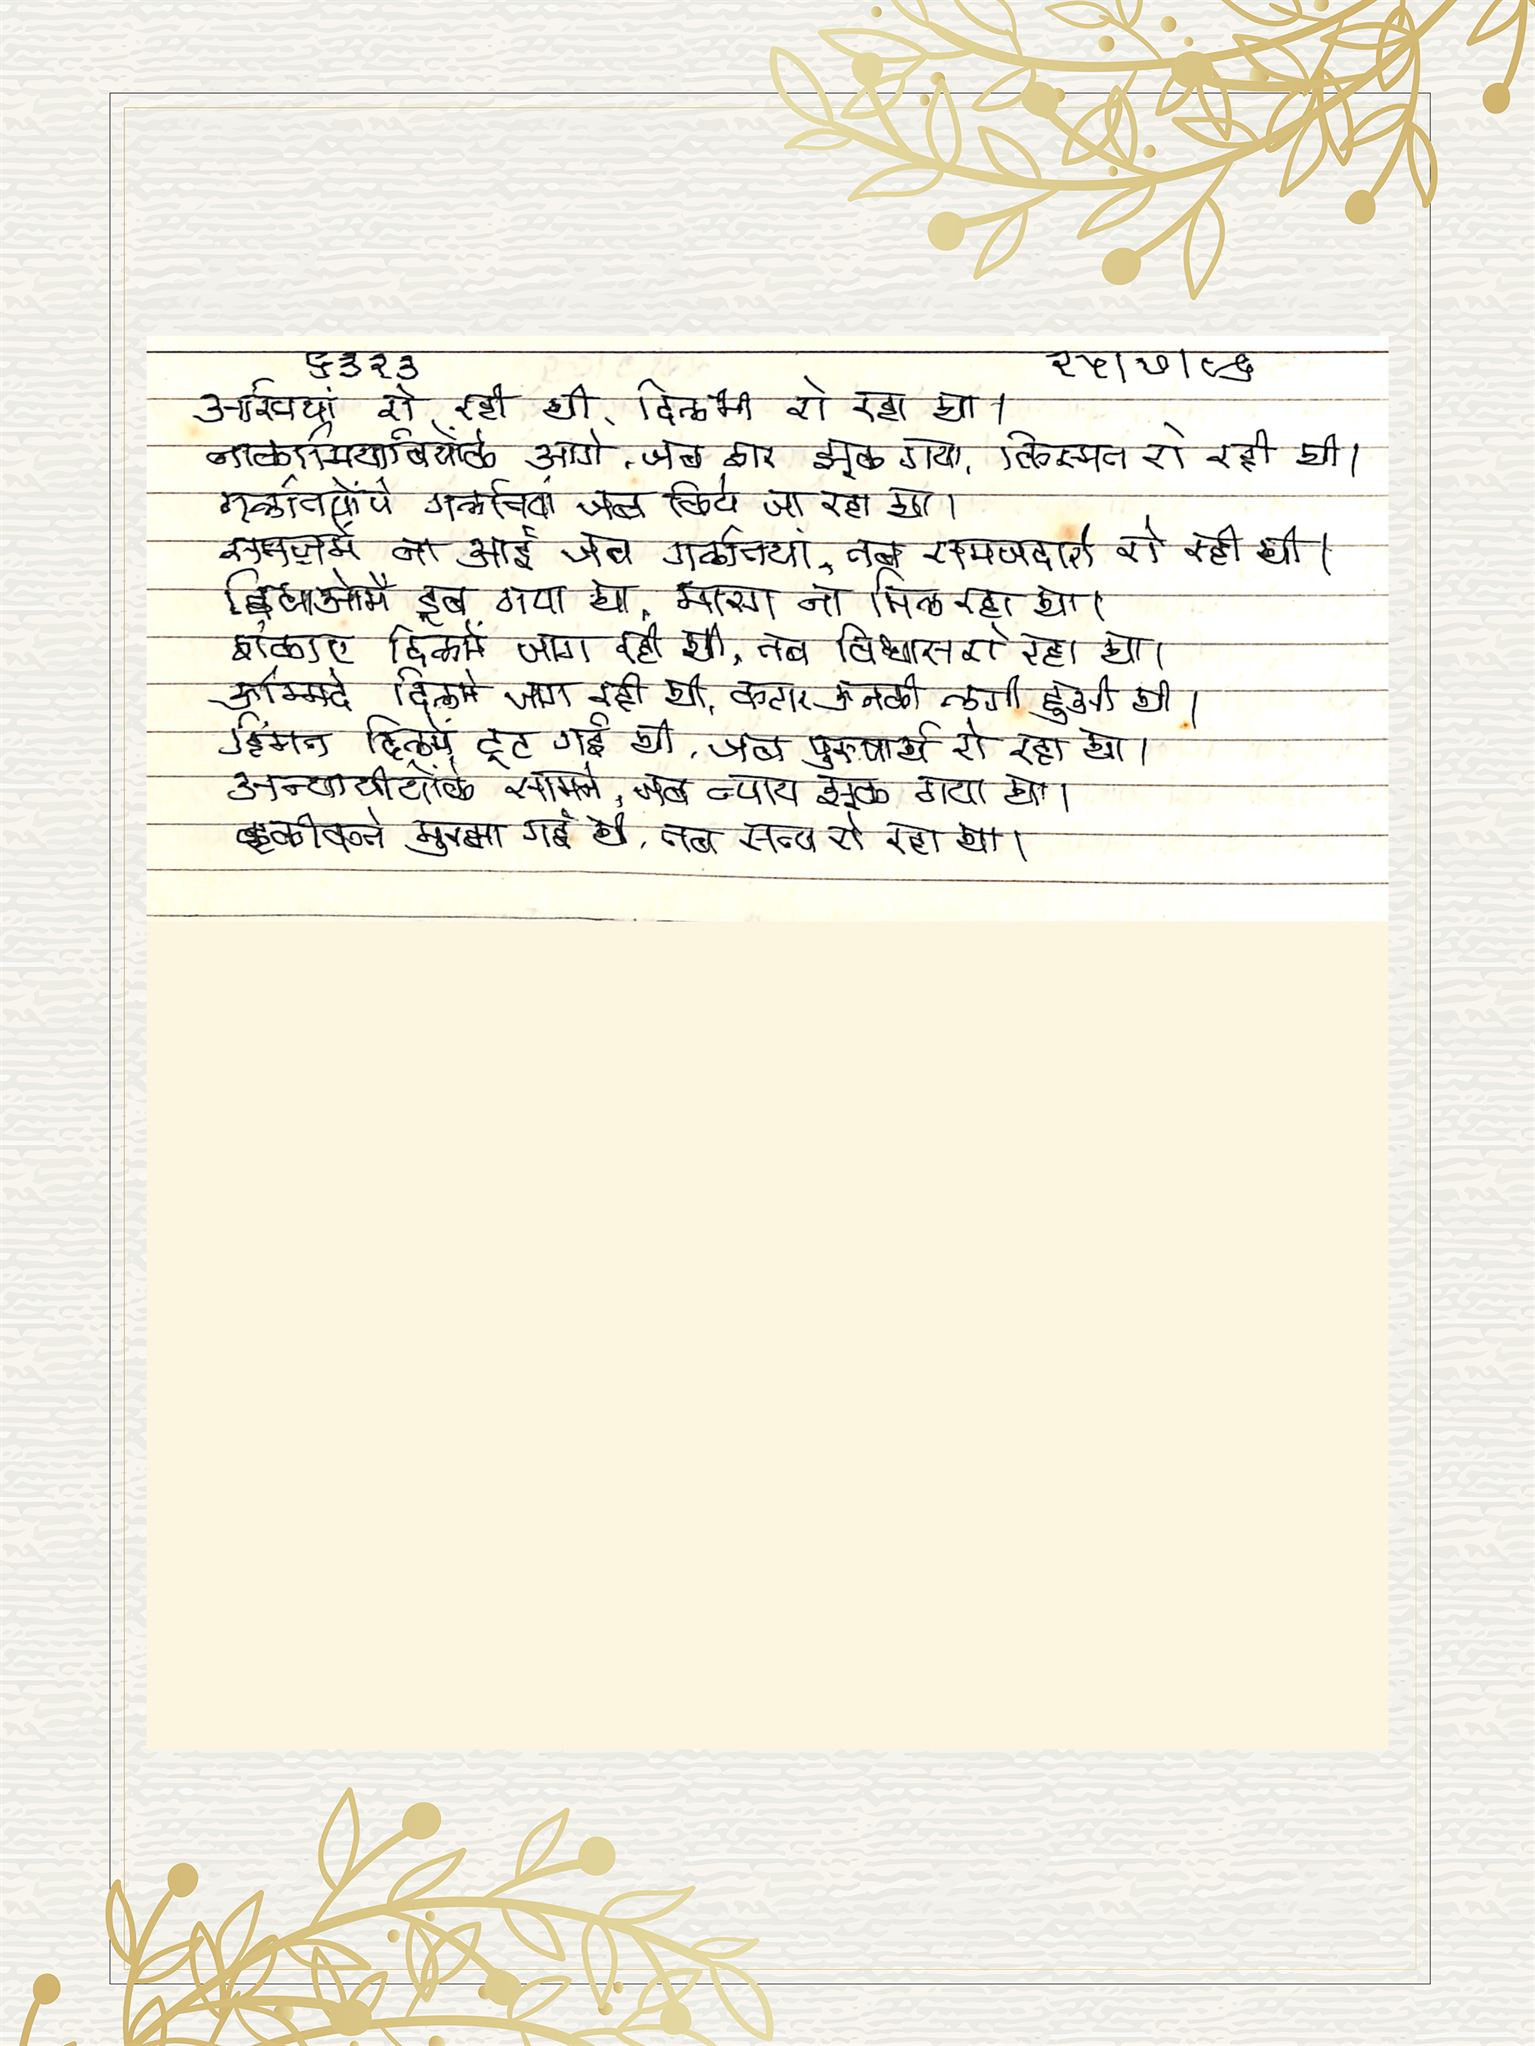 ५३२३ २५/७/८५
आँखियां रो रही थी, दिलभी रो रहा था।
नाकामियाबियोंके आगे, जब हार झूक गया, किस्मत रो रही थी।
गलतियोंपे गलतियां जब किये जा रहा था।
समजमें ना आई जब गलतियां, तब समजदारी रो रही थी।
द्विधाओमें डूब गया था, मारग ना मिल रहा था।
शंकाए दिलमें जाग रही थी, तब विश्वास रो रहा था।
ऊम्मिदे दिलमे जाग रही थी, कतार ऊनकी लगी हुओ थी।
हिंमत दिलमें टूट गई थी, जब पुरुषार्थ रो रहा था।
अन्यायीयोंके सामने, जब न्याय झूक गया था।
हकीकते मुरझा गई थी, तब सत्य रो रहा था।